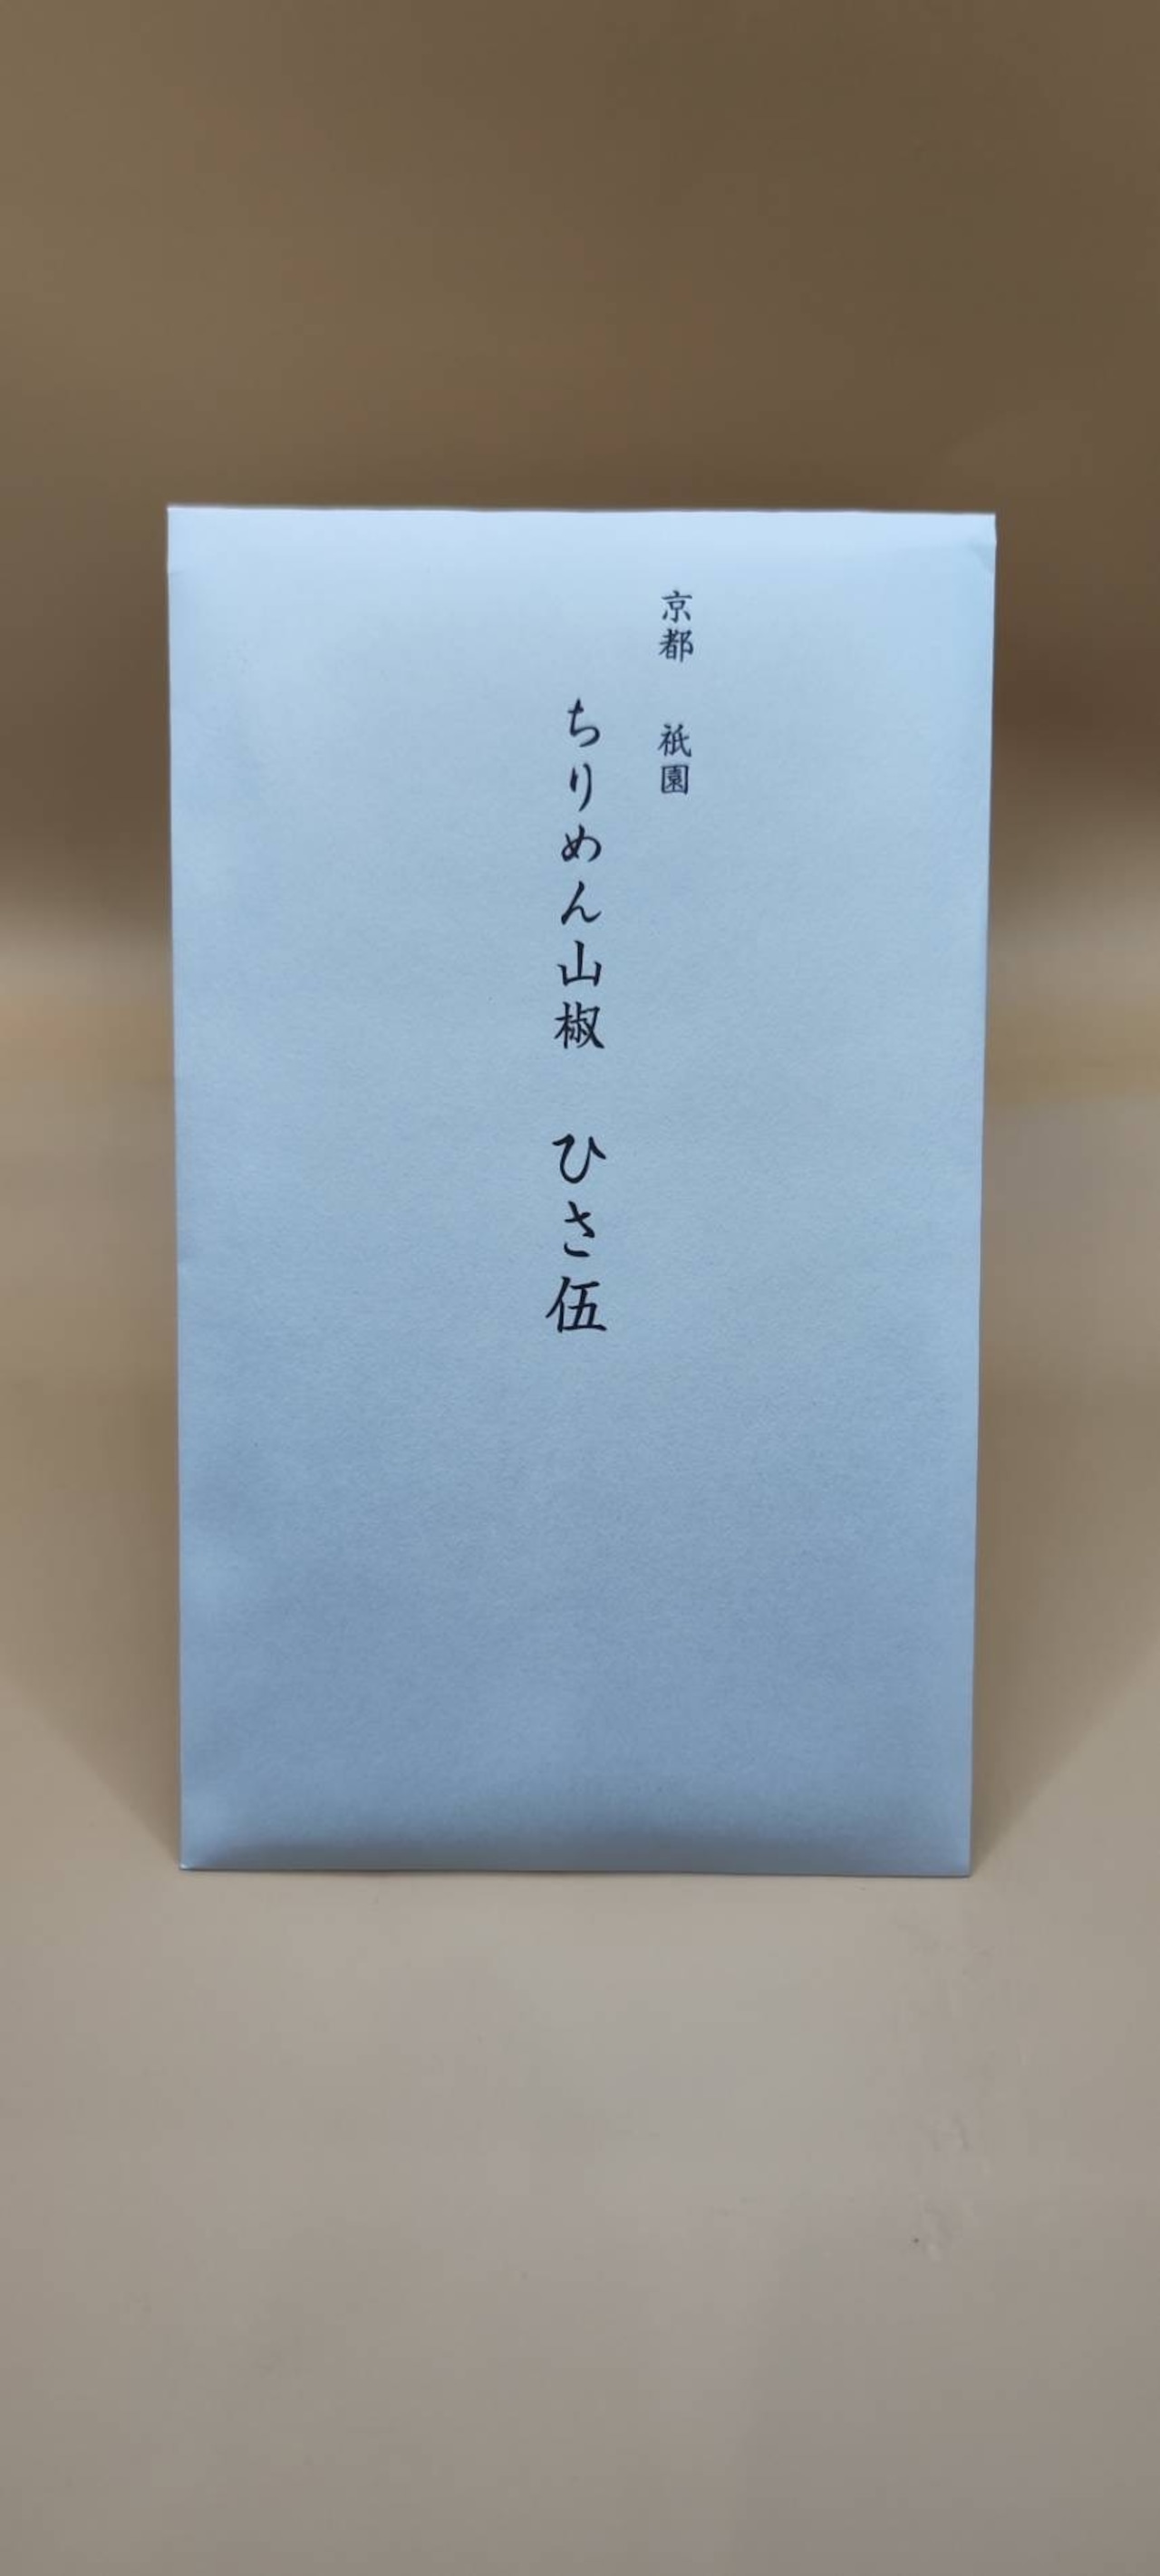 京都 祇園
ちりめん山椒 ひさ伍